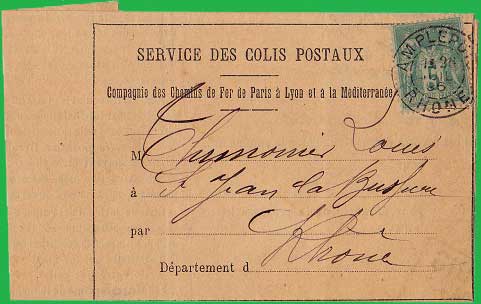 SERVICE DES COLIS POSTAUX
Compagnie des Chemins de Fer de Paris à Lyon et à la Méditerranée
AMPLEPUIS
RHONE
M Thimonier Louis
à St Jean la Bussière
par
Département d Rhône